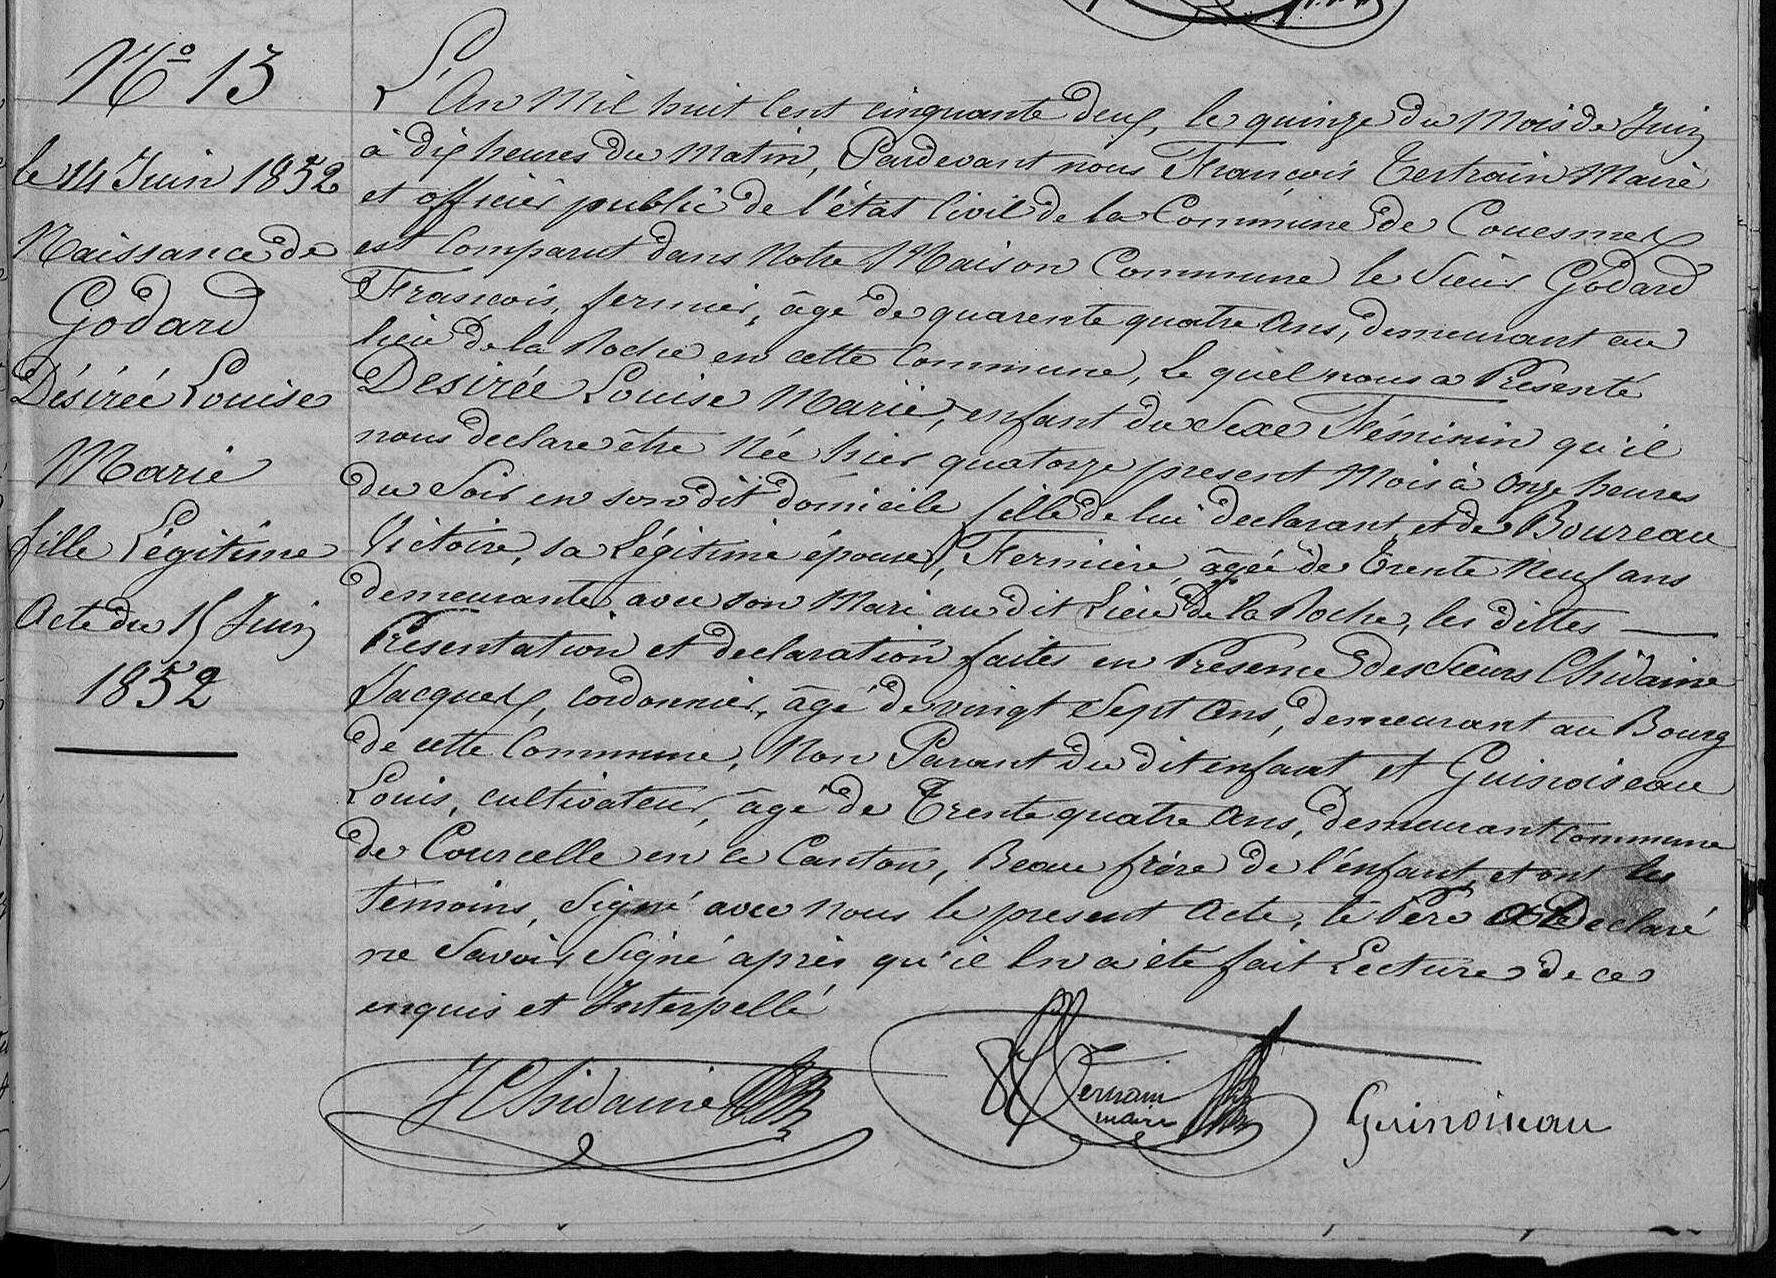 N.º 13
le 14 Juin 1852
Naissance de
Godard
Désirée Louise
Marie
fille Légitime
Acte du 15 Juin
1852
L'An Mil huit Cent cinquante deux, le quinze du Mois de Juin
à dix heures du Matin, Pardevant nous François Tertrain Maire
et officier public de l'état Civil de la Commune de Couesmes
est Comparut dans Notre Maison Commune le Sieur Godard
François, fermier, âgé de quarente quatre Ans, demeurant au
lieu de la Roche en cette Commune, Le quel nous a Présenté
Désirée Louise Marie, enfant du Sexe Féminin qu'il
nous declare être Née hier quatorze present Mois à Onze heures
du Soir en son dit domicile fille de lui declarant et de Boureau
Victoire, sa Légitime épouse, Fermière âgée de Trente Neuf ans
demeurante avec son Mari au dit Lieu de la Roche, les dittes
Présentation et declaration faites en Présence des Sieurs Chidaine
Jacques, cordonnier, âgé de vingt Sept Ans, demeurant au Bourg
de cette Commune, Non Parant du dit enfant et Guinoiseau
Louis, cultivateur, âgé de Trente quatre Ans, demeurant Commune
de Courcelle en ce Canton, Beau frère de l'enfant, et ont les
témoins, Signé avec nous le present Acte, le Père a Declaré
ne Savoir Signé après qu'il en a été fait Lecture de ce
enquis et Interpellé
J Chidaine
Tertrain
maire
Guinoiseau